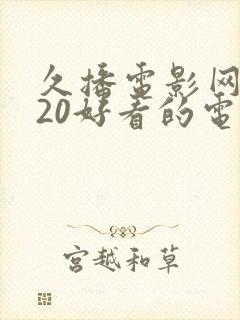 久播电影网
20好看的电
宫越和草